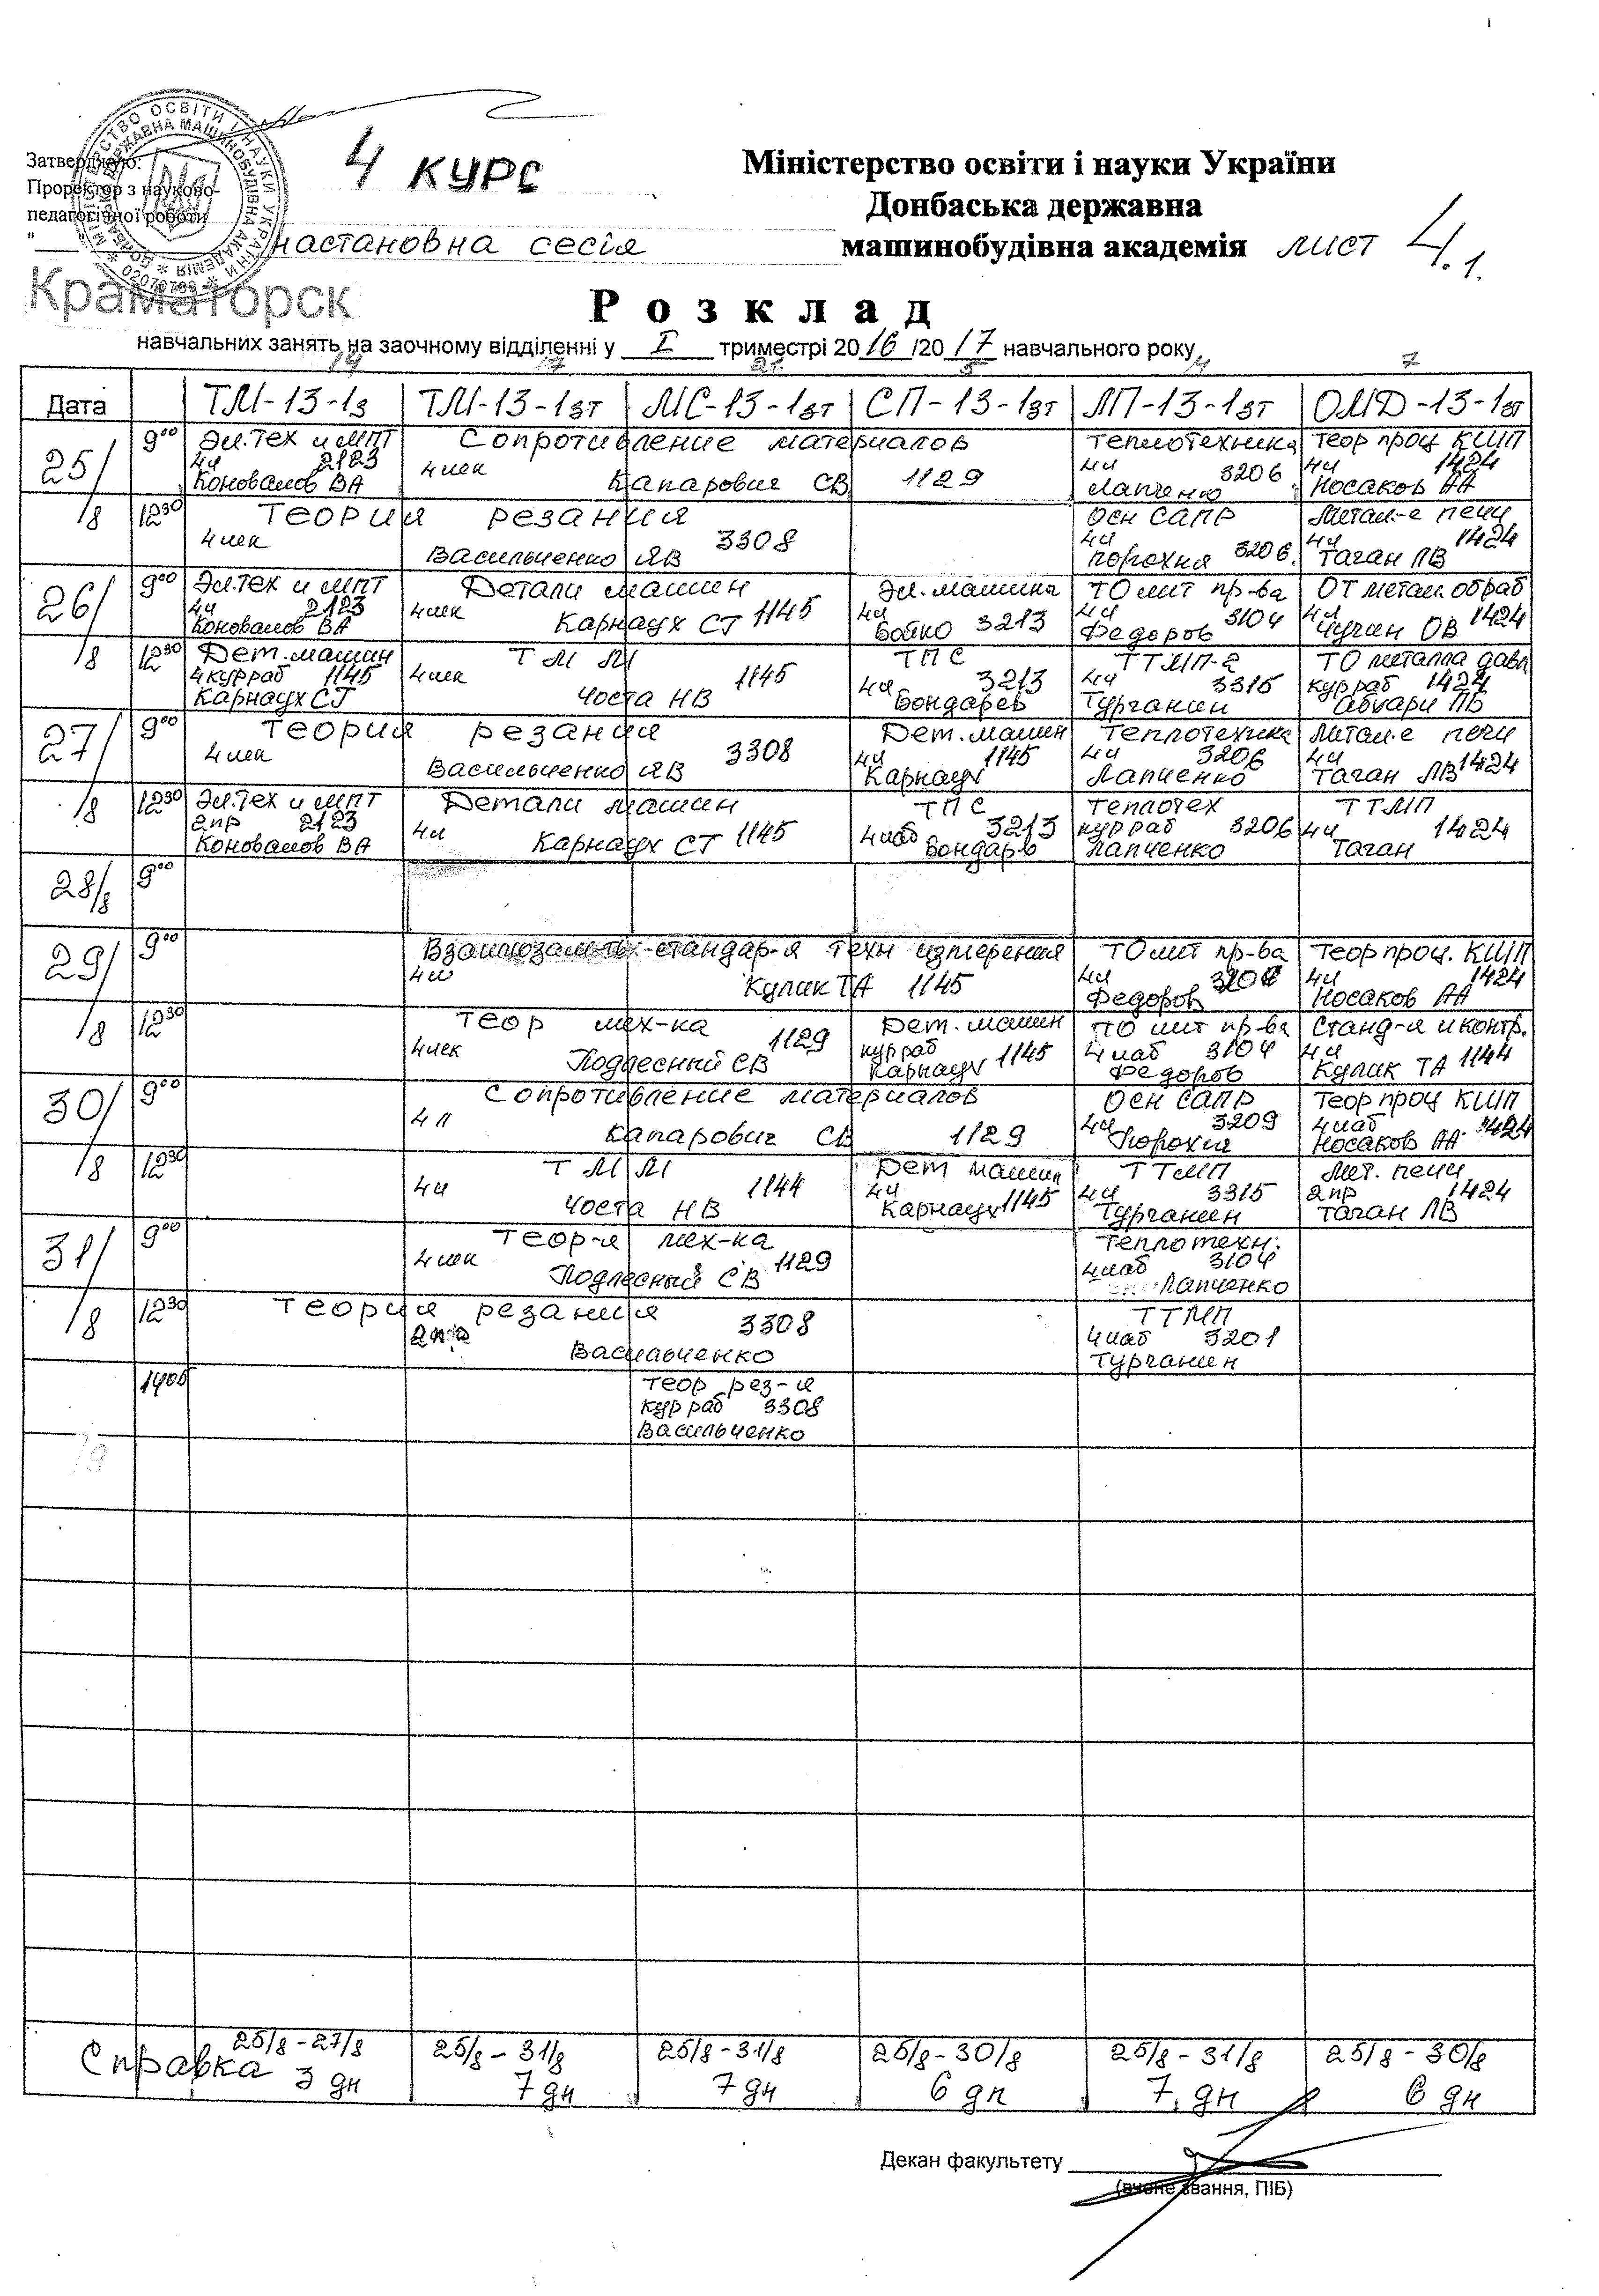 4 курс
Міністерство освіти і науки України
Донбаська державна
машинобудівна академія лист 4.1.
Затверджую:
Проректор з науково-
педагогічної роботи
настановна сесія
Краматорск
Розклад
навчальних занять на заочному відділенні у I триместрі 2016/2017 навчального року
14 17 21 5 7
Дата ТМ-13-1з ТМ-13-1зт МС-13-1зт СП-13-1зт ЛП-13-1зт ОМД-13-1зт
25/8 9⁰⁰ Эл.тех и МПТ Сопротивление материалов Теплотехника Теор проц КШП
4ч 2123 4лек 1129 4ч 3206 4ч 1424
Коновалов ВА Капарович СВ Лапченко Носаков АА
12³⁰ Теория резания Осн САПР Метал-е печи
4лек 3308 4ч 3206 4ч 1424
Васильченко ЯВ Порохня Таган ЛВ
26/8 9⁰⁰ Эл.тех и МПТ Детали машин Эл.машина ТО лит пр-ва ОТ метал обраб
4ч 2123 4лек 1145 4ч 3213 4ч 3104 4ч 1424
Коновалов ВА Карнаух СГ Бойко Федоров Чучин ОВ
12³⁰ Дет.машин ТММ ТПС ТТМП-2 ТО металла давл
4кур раб 1145 4лек 1145 4ч 3213 4ч 3315 кур раб 1424
Карнаух СГ Чоста НВ Бондарев Турчанин ПВ
27/8 9⁰⁰ Теория резания Дет.машин Теплотехника Метал-е печи
4лек 3308 4ч 1145 4ч 3206 4ч 1424
Васильченко ЯВ Карнаух Лапченко Таган ЛВ
12³⁰ Эл.тех и МПТ Детали машин ТПС Теплотех ТТМП
2пр 2123 4ч 1145 4лаб 3213 кур раб 3206 4ч 1424
Коновалов ВА Карнаух СГ Бондарев Лапченко Таган
28/8 9⁰⁰
29/8 9⁰⁰ стандар-я техн измерения ТО лит пр-ва Теор проц. КШП
4ч 1145 4ч 4ч 1424
Кулик ТА Федоров Носаков АА
12³⁰ Теор мех-ка Дет.машин ТО лит пр-ва Станд-я и контр.
4лек 1129 кур раб 1145 4лаб 3104 4ч 1144
Подлесный СВ Карнаух Федоров Кулик ТА
30/8 9⁰⁰ Сопротивление материалов Осн САПР Теор проц КШП
4л 1129 4ч 3209 4лаб 1424
Капарович СВ Порохня Носаков АА
12³⁰ ТММ Дет машин ТТМП Мет. печи
4ч 1144 4ч 1145 4ч 3315 2пр 1424
Чоста НВ Карнаух Турчанин Таган ЛВ
31/8 9⁰⁰ Теор-я мех-ка Теплотехн.
4лек 1129 4лаб 3104
Подлесный СВ Лапченко
12³⁰ Теория резания ТТМП
3308 4лаб 3201
Васильченко Турчанин
14⁰⁰ Теор рез-я
кур раб 3308
Васильченко
Справка 25/8-27/8 25/8-31/8 25/8-31/8 25/8-30/8 25/8-31/8 25/8-30/8
3 дн 7 дн 7 дн 6 дн 7 дн 6 дн
Декан факультету
(вчене звання, ПІБ)